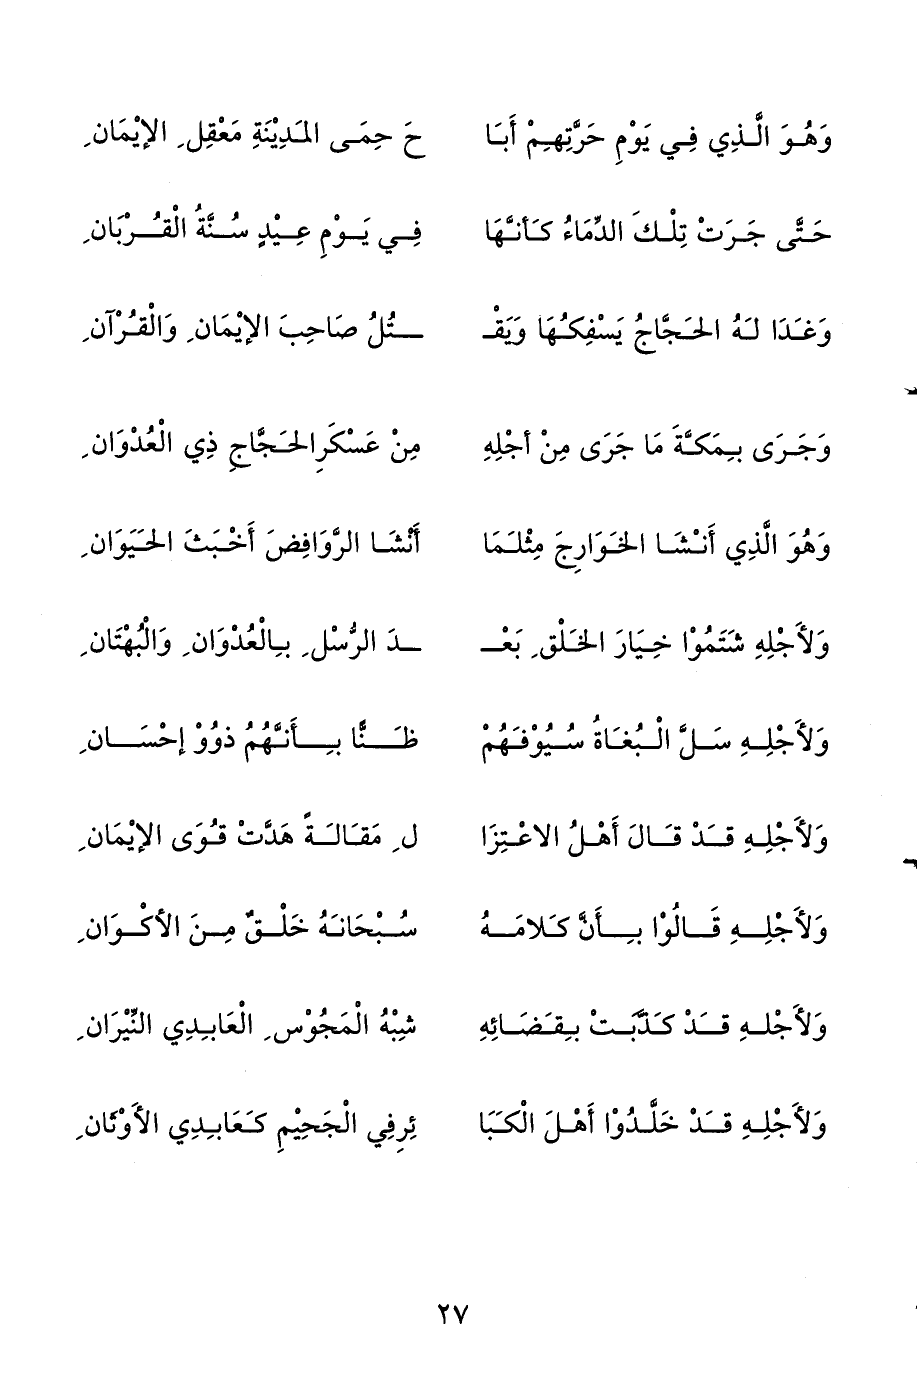 وَهُوَ الَّذِي فِي يَوْمِ حَرَّتِهِمْ أَبَا حَ حِمَى المَدِيْنَةِ مَعْقِلِ الإِيْمَانِ
حَتَّى جَرَتْ تِلْكَ الدِّمَاءُ كَأَنَّهَا فِي يَوْمِ عِيْدٍ سُنَّةُ الْقُرْبَانِ
وَغَدَا لَهُ الحَجَّاجُ يَسْفِكُهَا وَيَقْـ ـتُلُ صَاحِبَ الإِيْمَانِ وَالْقُرْآنِ
وَجَرَى بِمَكَّةَ مَا جَرَى مِنْ أَجْلِهِ مِنْ عَسْكَرِ الحَجَّاجِ ذِي الْعُدْوَانِ
وَهُوَ الَّذِي أَنْشَا الخَوَارِجَ مِثْلَمَا أَنْشَا الرَّوَافِضَ أَخْبَثَ الحَيَوَانِ
وَلأَجْلِهِ شَتَمُوْا خِيَارَ الخَلْقِ بَعْـ ـدَ الرُّسْلِ بِالْعُدْوَانِ وَالْبُهْتَانِ
وَلأَجْلِهِ سَلَّ الْبُغَاةُ سُيُوْفَهُمْ ظَنًّا بِأَنَّهُمُ ذَوُوْ إِحْسَانِ
وَلأَجْلِهِ قَدْ قَالَ أَهْلُ الاعْتِزَا لِ مَقَالَةً هَدَّتْ قُوَى الإِيْمَانِ
وَلأَجْلِهِ قَالُوْا بِأَنَّ كَلامَهُ سُبْحَانَهُ خَلْقٌ مِنَ الأَكْوَانِ
وَلأَجْلِهِ قَدْ كَذَّبَتْ بِقَضَائِهِ شِبْهُ الْمَجُوْسِ الْعَابِدِي النِّيْرَانِ
وَلأَجْلِهِ قَدْ خَلَّدُوْا أَهْلَ الْكَبَا ئِرِ فِي الْجَحِيْمِ كَعَابِدِي الأَوْثَانِ
٢٧